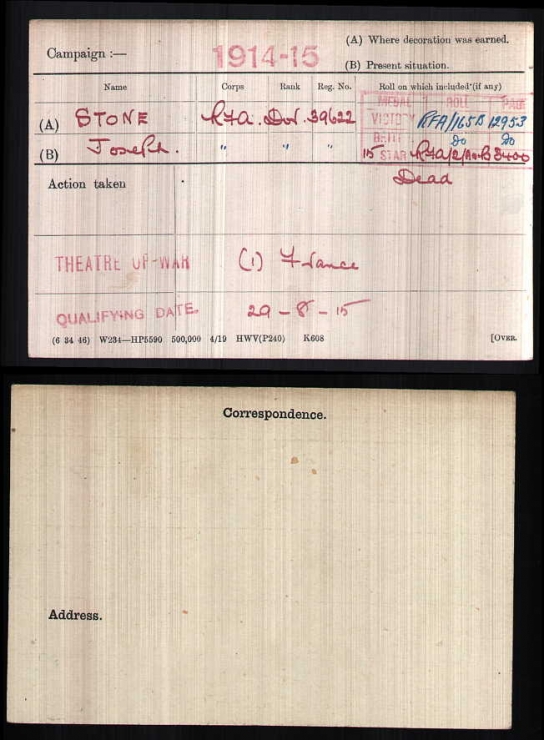 Campaign :—
1914-15
(A) Where decoration was earned.
(B) Present situation.
Name Corps Rank Reg. No. Roll on which included (if any)
MEDAL ROLL PAGE
(A) STONE R.F.A. Dvr. 39622 VICTORY RFA/165B 12953
(B) Joseph. " " " BRIT do do
15 STAR RFA/2/ 3400
Action taken
Dead
THEATRE OF WAR (1) France
QUALIFYING DATE. 29-8-15
(6 34 46) W234—HP5590 500,000 4/19 HWV(P240) K608 [OVER.
Correspondence.
Address.